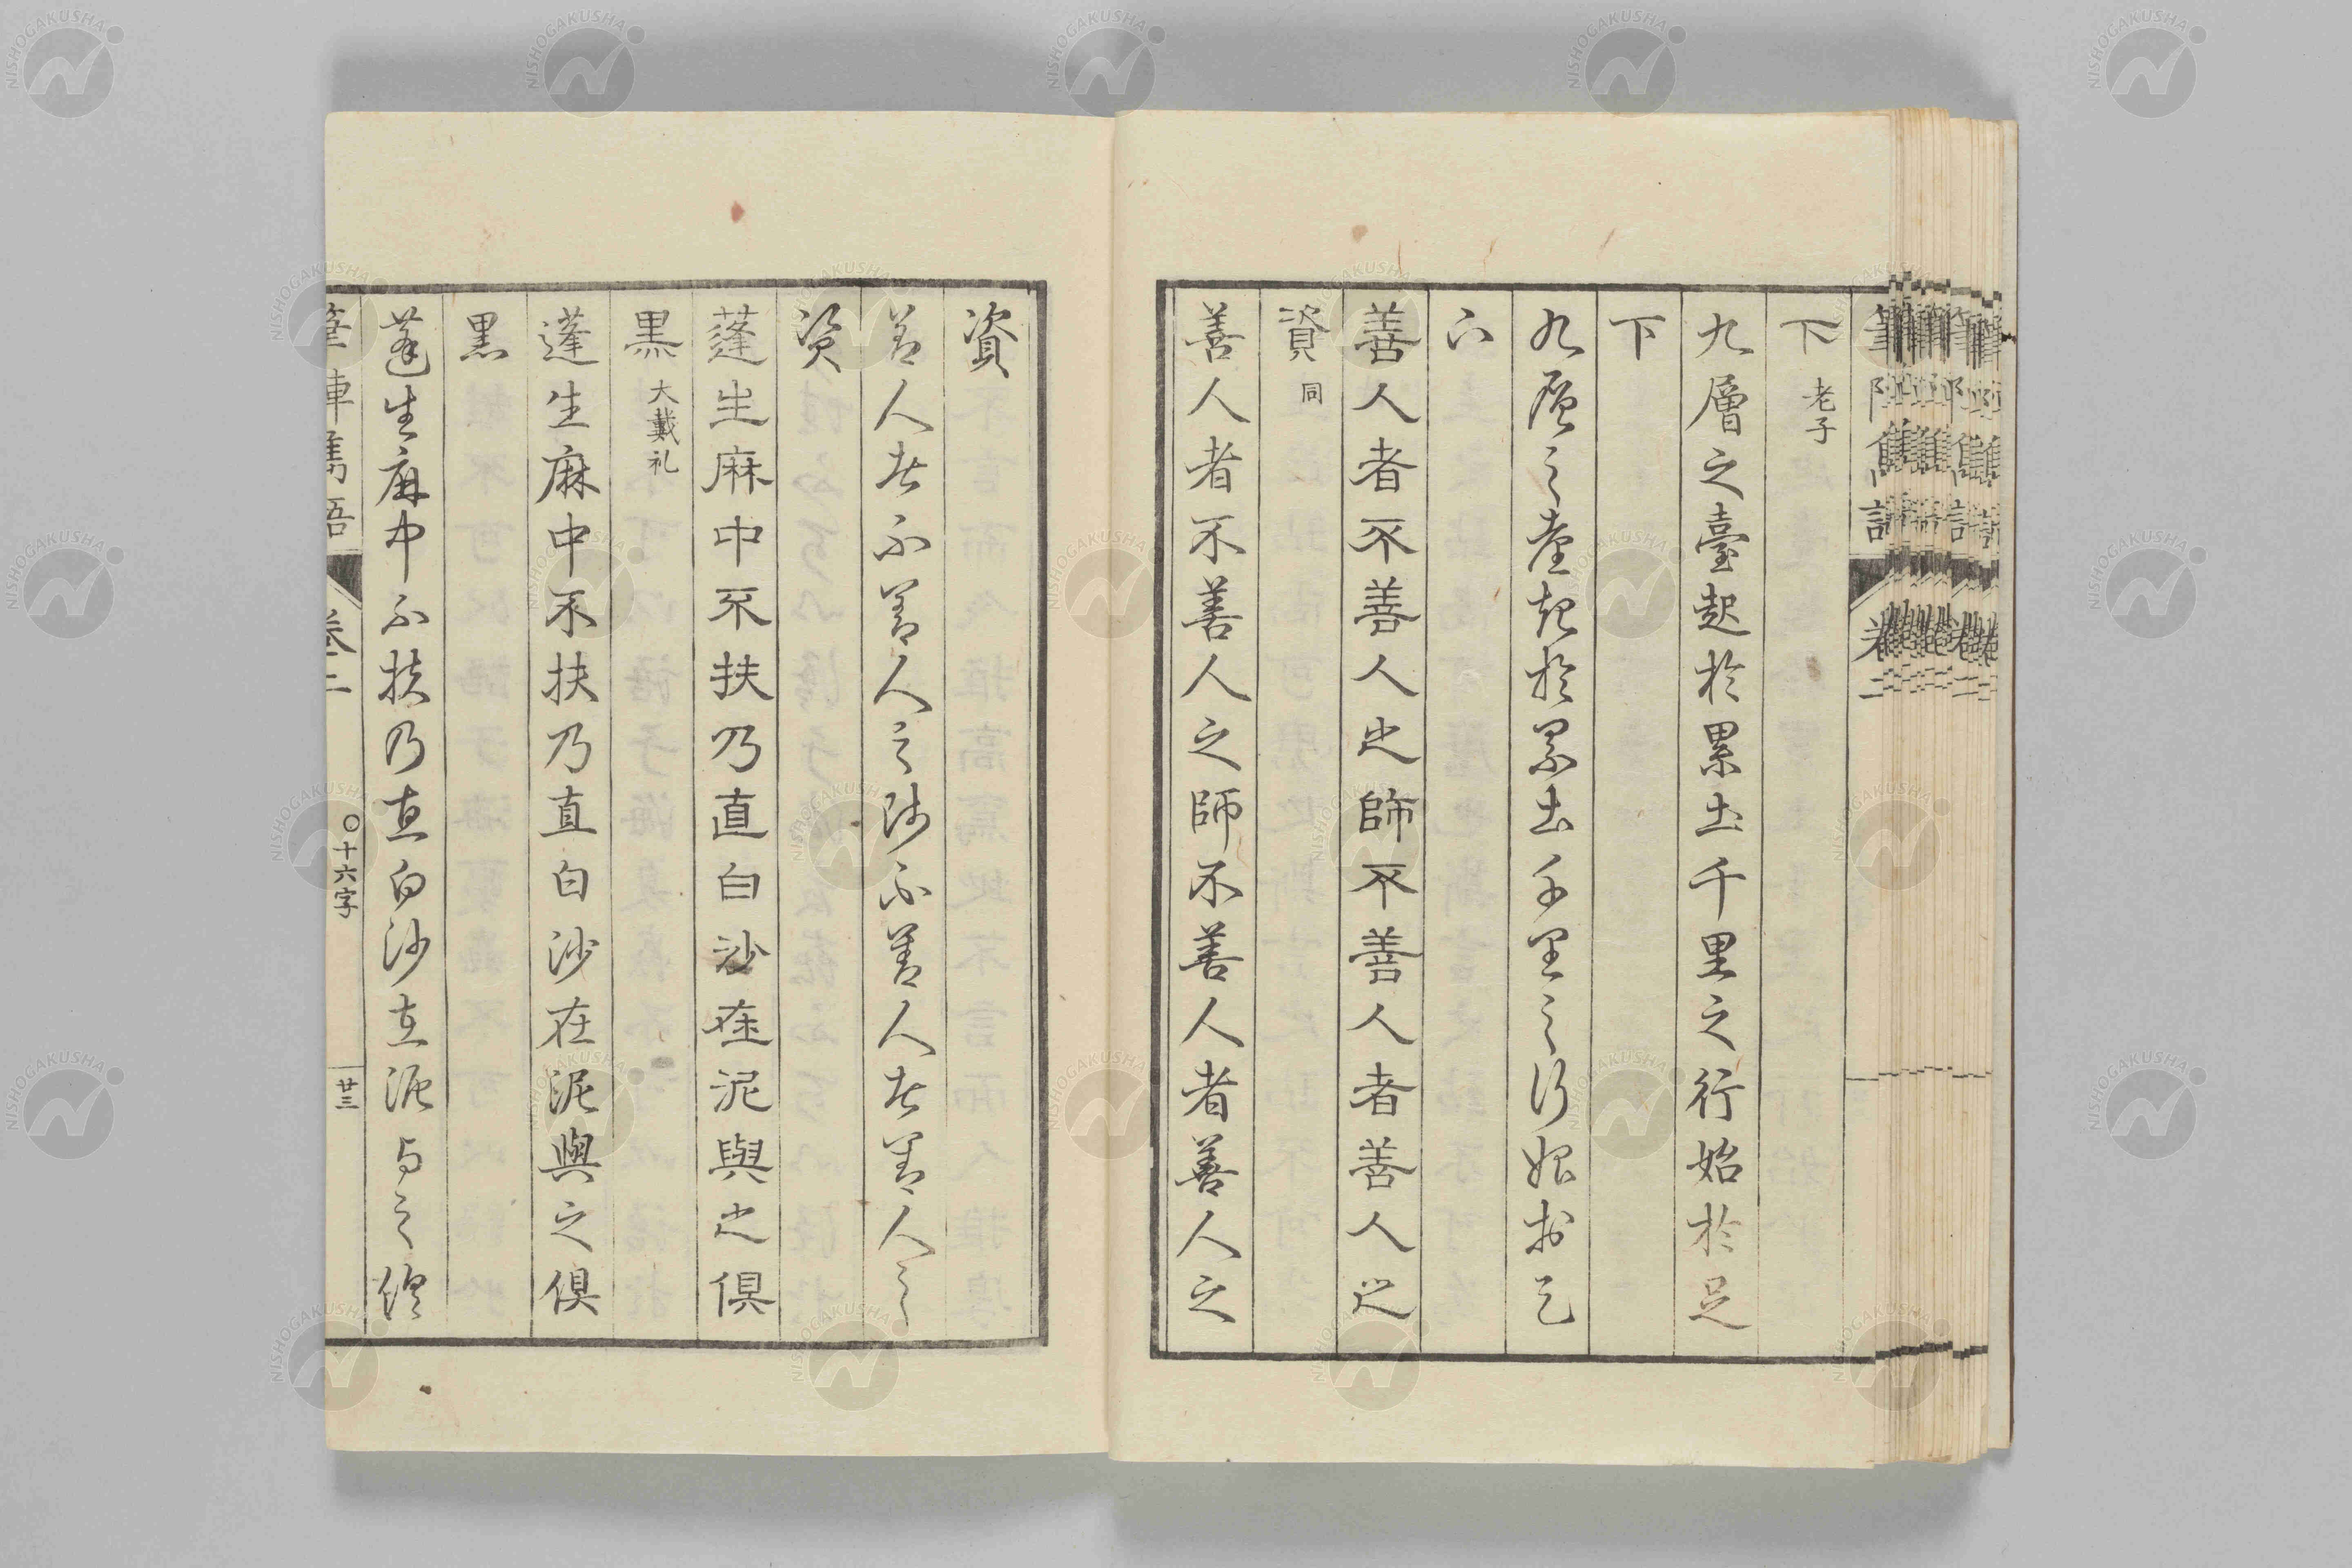 下 老子
九層之臺起於累土千里之行始於足
下
九層之臺起於累土千里之行始於足
下
善人者不善人之師不善人者善人之
資 同
善人者不善人之師不善人者善人之
資
善人者不善人之師不善人者善人之
資
蓬生麻中不扶乃直白沙在泥與之俱
黒 大戴礼
蓬生麻中不扶乃直白沙在泥與之俱
黒
蓬生麻中不扶乃直白沙在泥与之俱
筆陣雋語 卷二 〇十六字 廿三
NISHOGAKUSHA